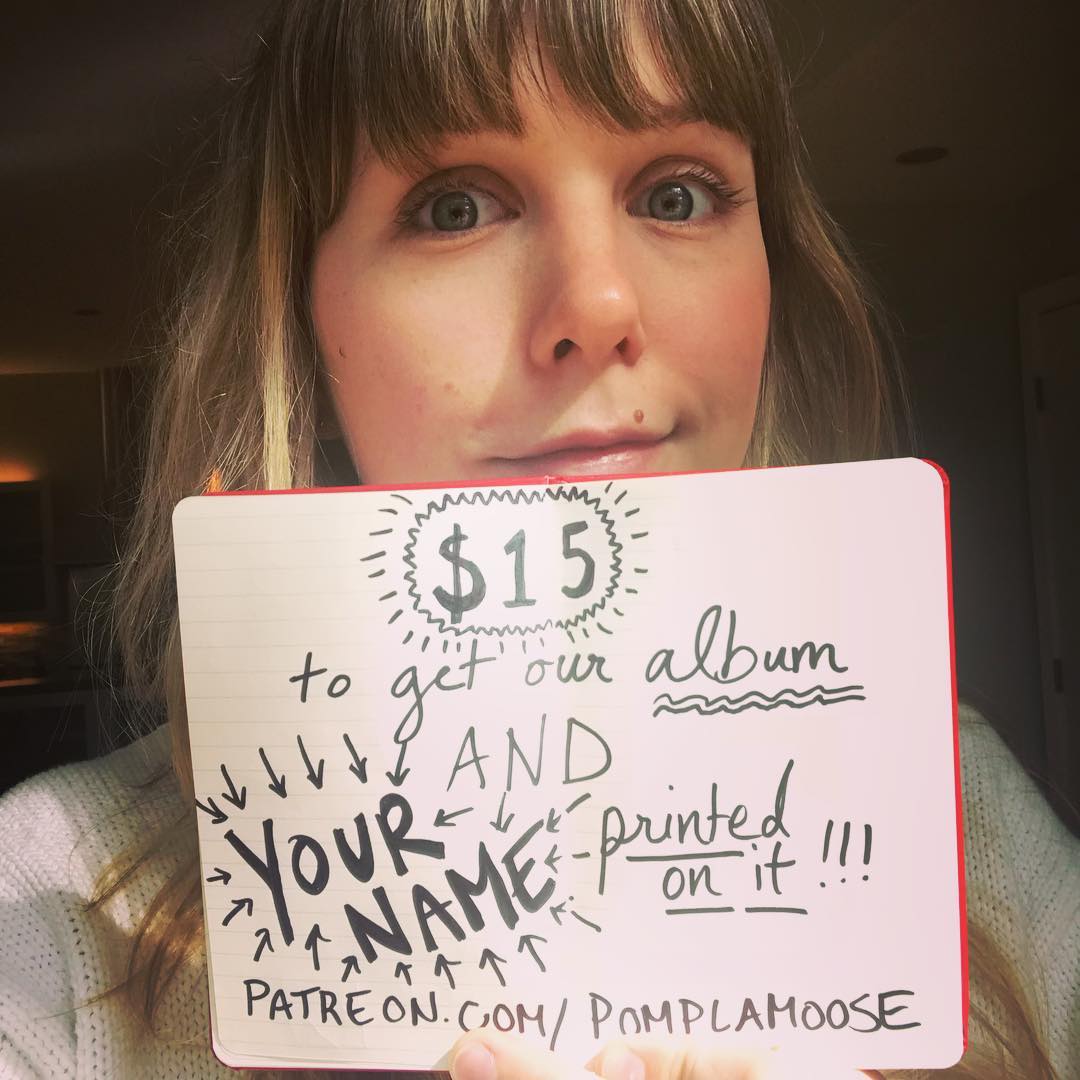 $15
to get our album
AND
YOUR NAME printed
on it !!!
PATREON.COM/POMPLAMOOSE